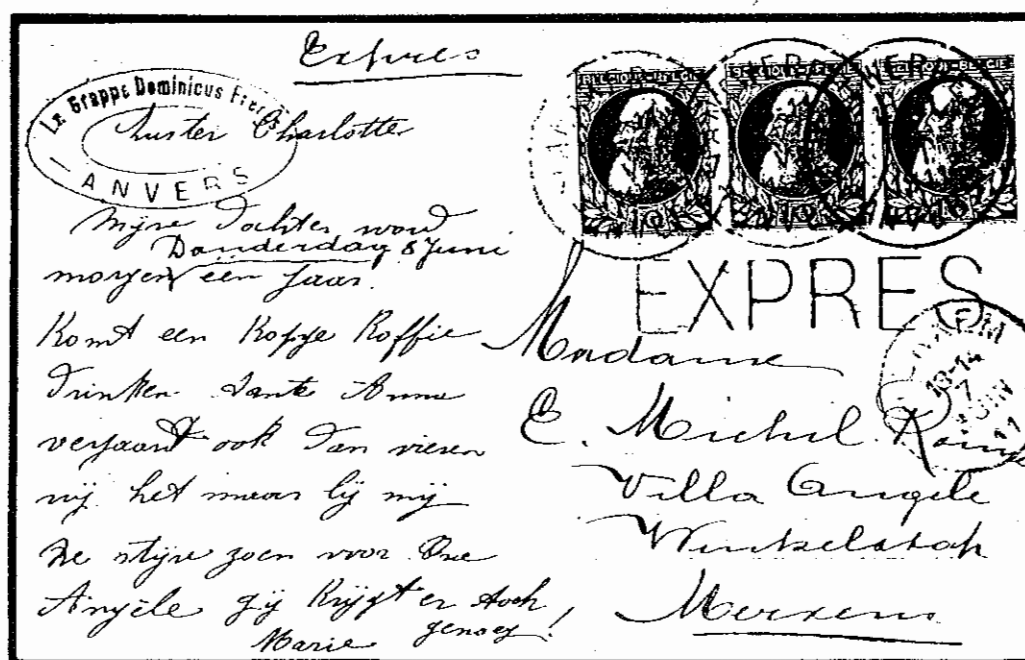 Expres
La Grappe Dominicus Frères
ANVERS
Zuster Charlotte
Mijne dochter word
Donderdag 8 Juni
morgen een jaar.
Komt een Kopje Koffie
drinken. Tante Anna
verjaard ook dan vieren
wij het maar bij mij
ne stijve zoen voor Ons
Angèle gij Krijgt er toch
genoeg!
Marie
BELGIQUE-BELGIË
BELGIQUE-BELGIË
BELGIQUE-BELGIË
10
10
10
EXPRES
13-14
7
JUIN
11
Madame
E. Michil
Villa Angèle
Winkelstap
Merxem